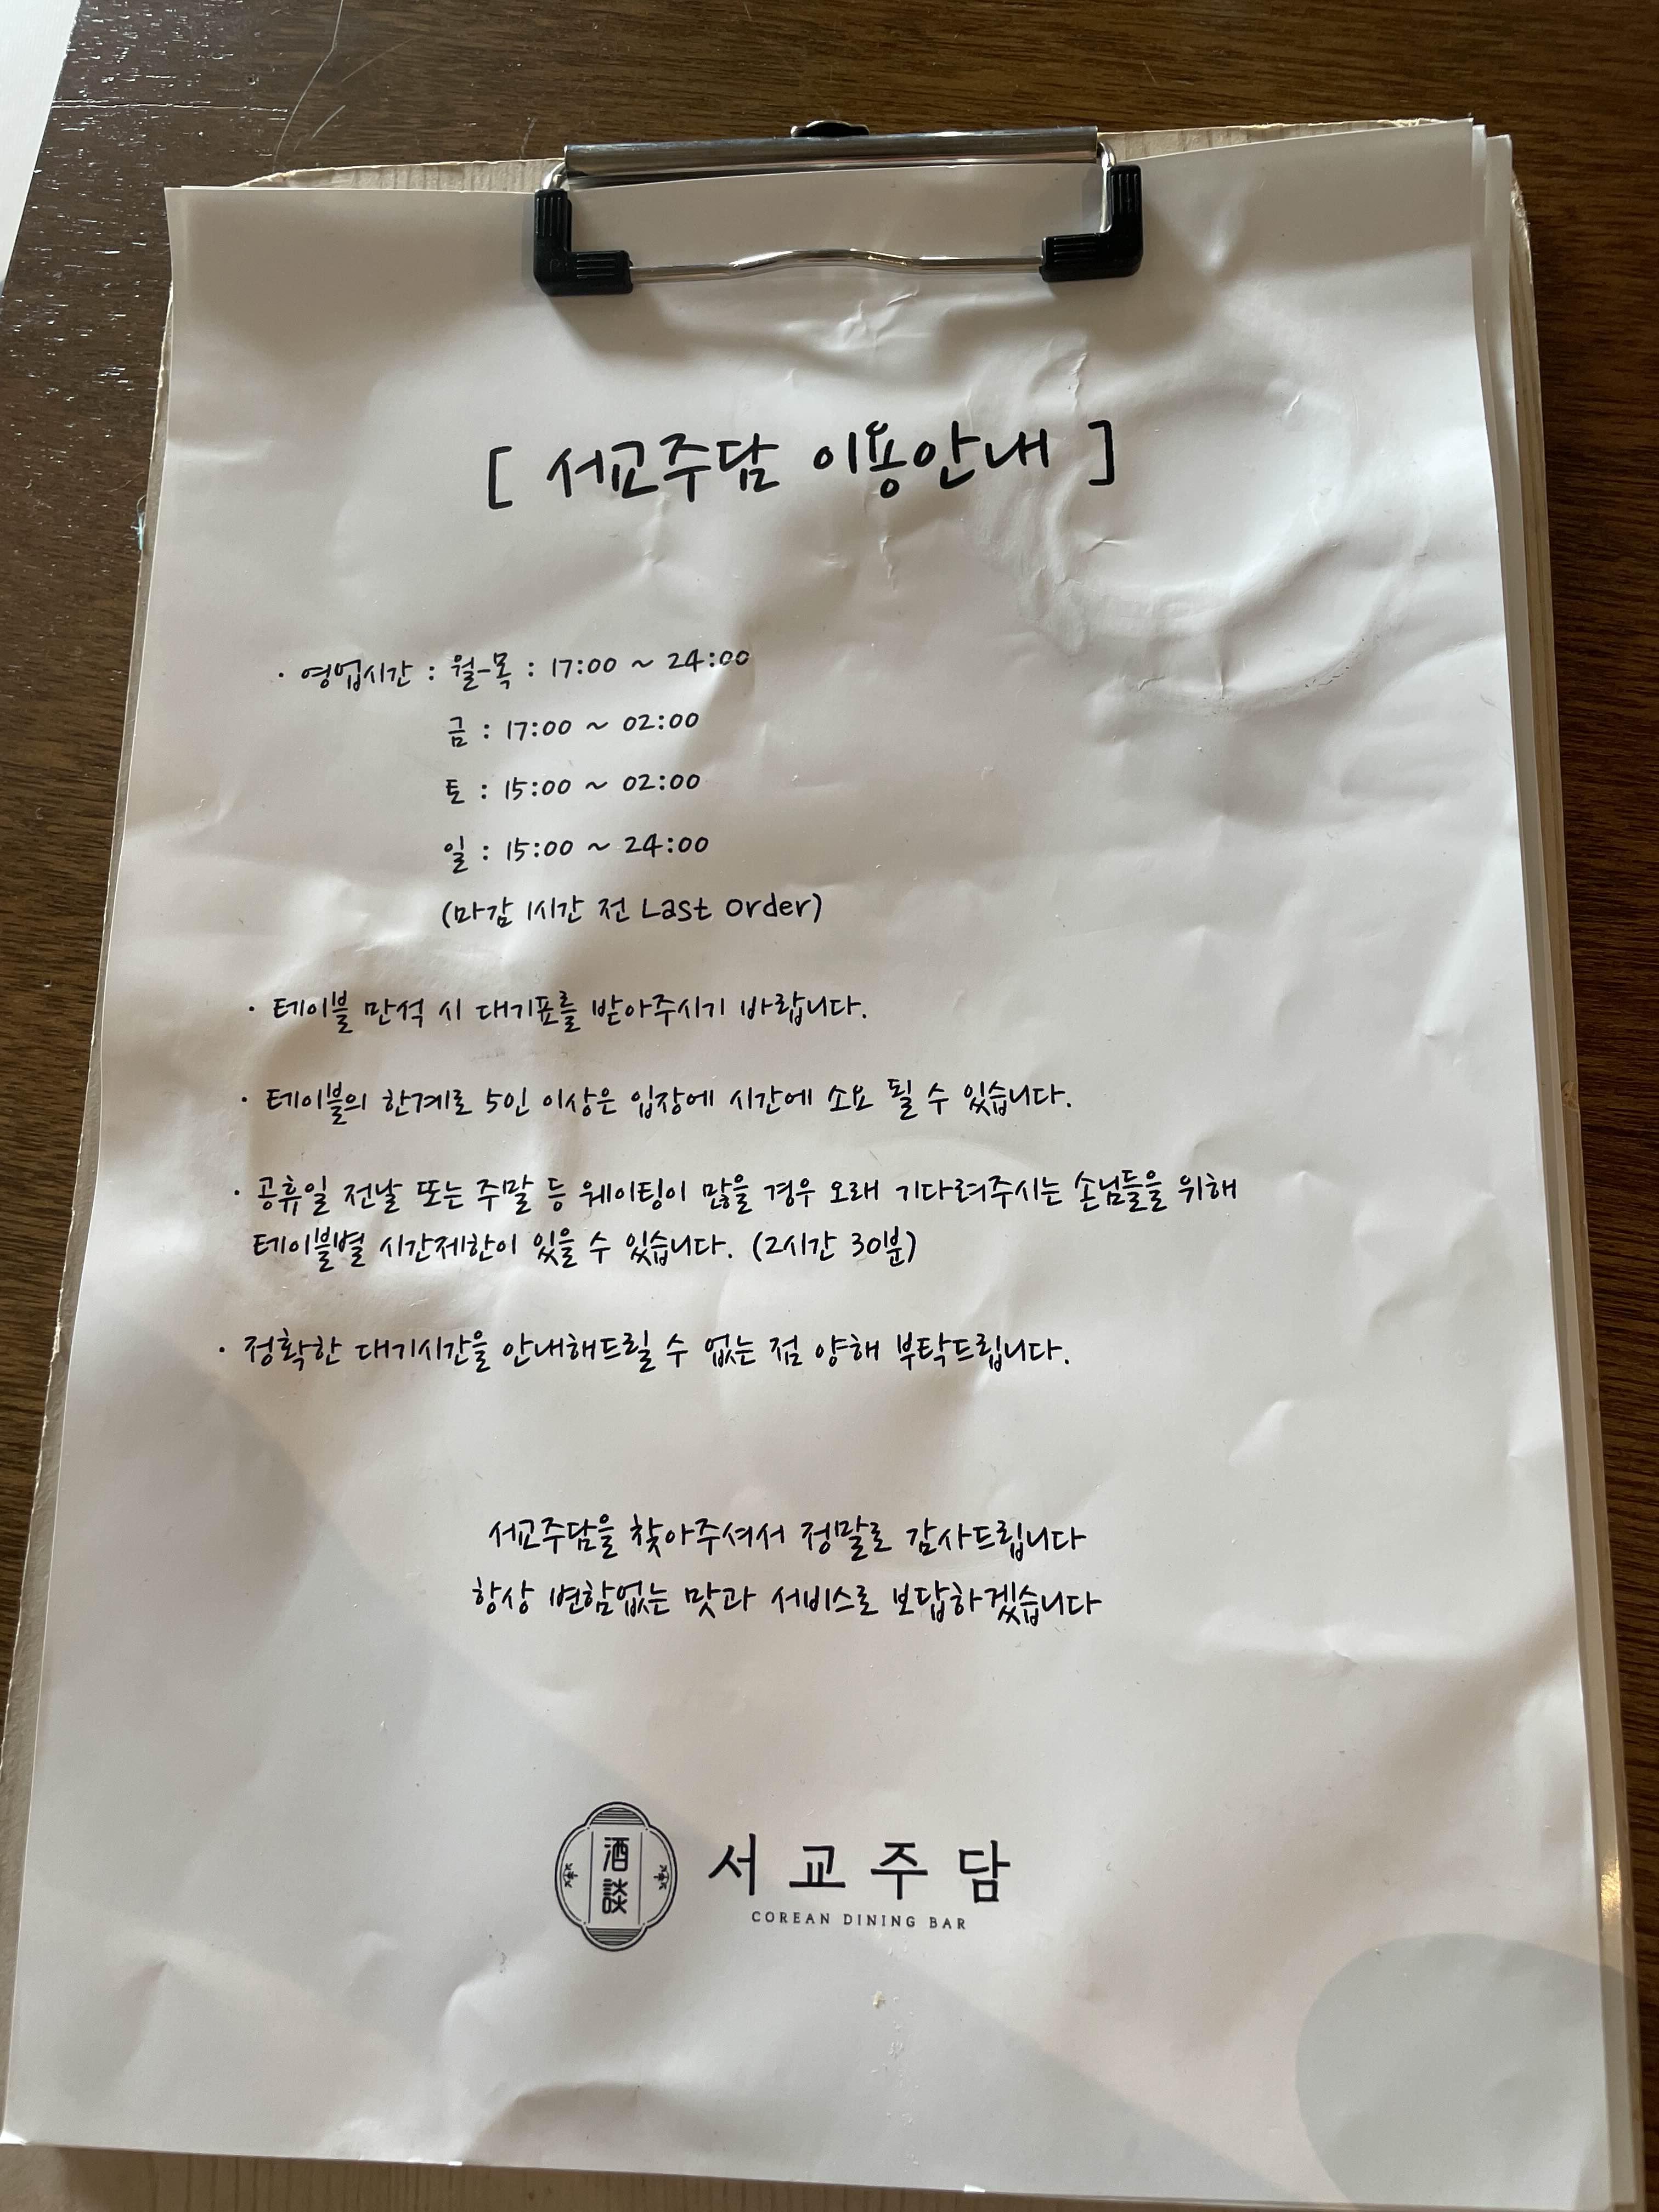 [ 서교주담 이용안내 ]
· 영업시간 : 월-목 : 17:00 ~ 24:00
금 : 17:00 ~ 02:00
토 : 15:00 ~ 02:00
일 : 15:00 ~ 24:00
(마감 1시간 전 Last Order)
· 테이블 만석 시 대기표를 받아주시기 바랍니다.
· 테이블의 한계로 5인 이상은 입장에 시간에 소요 될 수 있습니다.
· 공휴일 전날 또는 주말 등 웨이팅이 많을 경우 오래 기다려주시는 손님들을 위해
테이블별 시간제한이 있을 수 있습니다. (2시간 30분)
· 정확한 대기시간을 안내해드릴 수 없는 점 양해 부탁드립니다.
서교주담을 찾아주셔서 정말로 감사드립니다
항상 변함없는 맛과 서비스로 보답하겠습니다
酒談
서교주담
COREAN DINING BAR